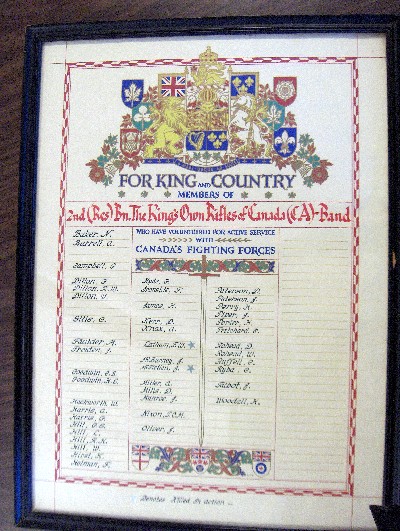 FOR KING AND COUNTRY
MEMBERS OF
2nd (Res) Bn. The King's Own Rifles of Canada (CA)-Band
WHO HAVE VOLUNTEERED FOR ACTIVE SERVICE
WITH
CANADA'S FIGHTING FORCES
Baker, N.
Barrell, A.
Campbell, C.
Dillon,
Dillon,
Dillon,
Gillis, G.
Faulder, A.
Fenton, J.
Goodwin, G.S.
Goodwin, H.C.
Hackworth, W.
Harris, A.
Harris, G.
Hill, G.G.
Hill, L.
Hill, R.K.
Hill, W.
Hirst, K.
Holman, F.
Hyde, F.
James, H.
Kerr, D.
Knox, A.
Latham,
McBurney, J.
Miller, A.
Mills, D.
Munroe, J.
Nixon,
Oliver, J.
Paterson, D.
Peterson, J.
Perry, H.
Piper, J.
Porter, H.
Pritchard,
Ruffell, E.
Ryba, C.
Talbot, J.
Woodall, H.
Denotes Killed in action